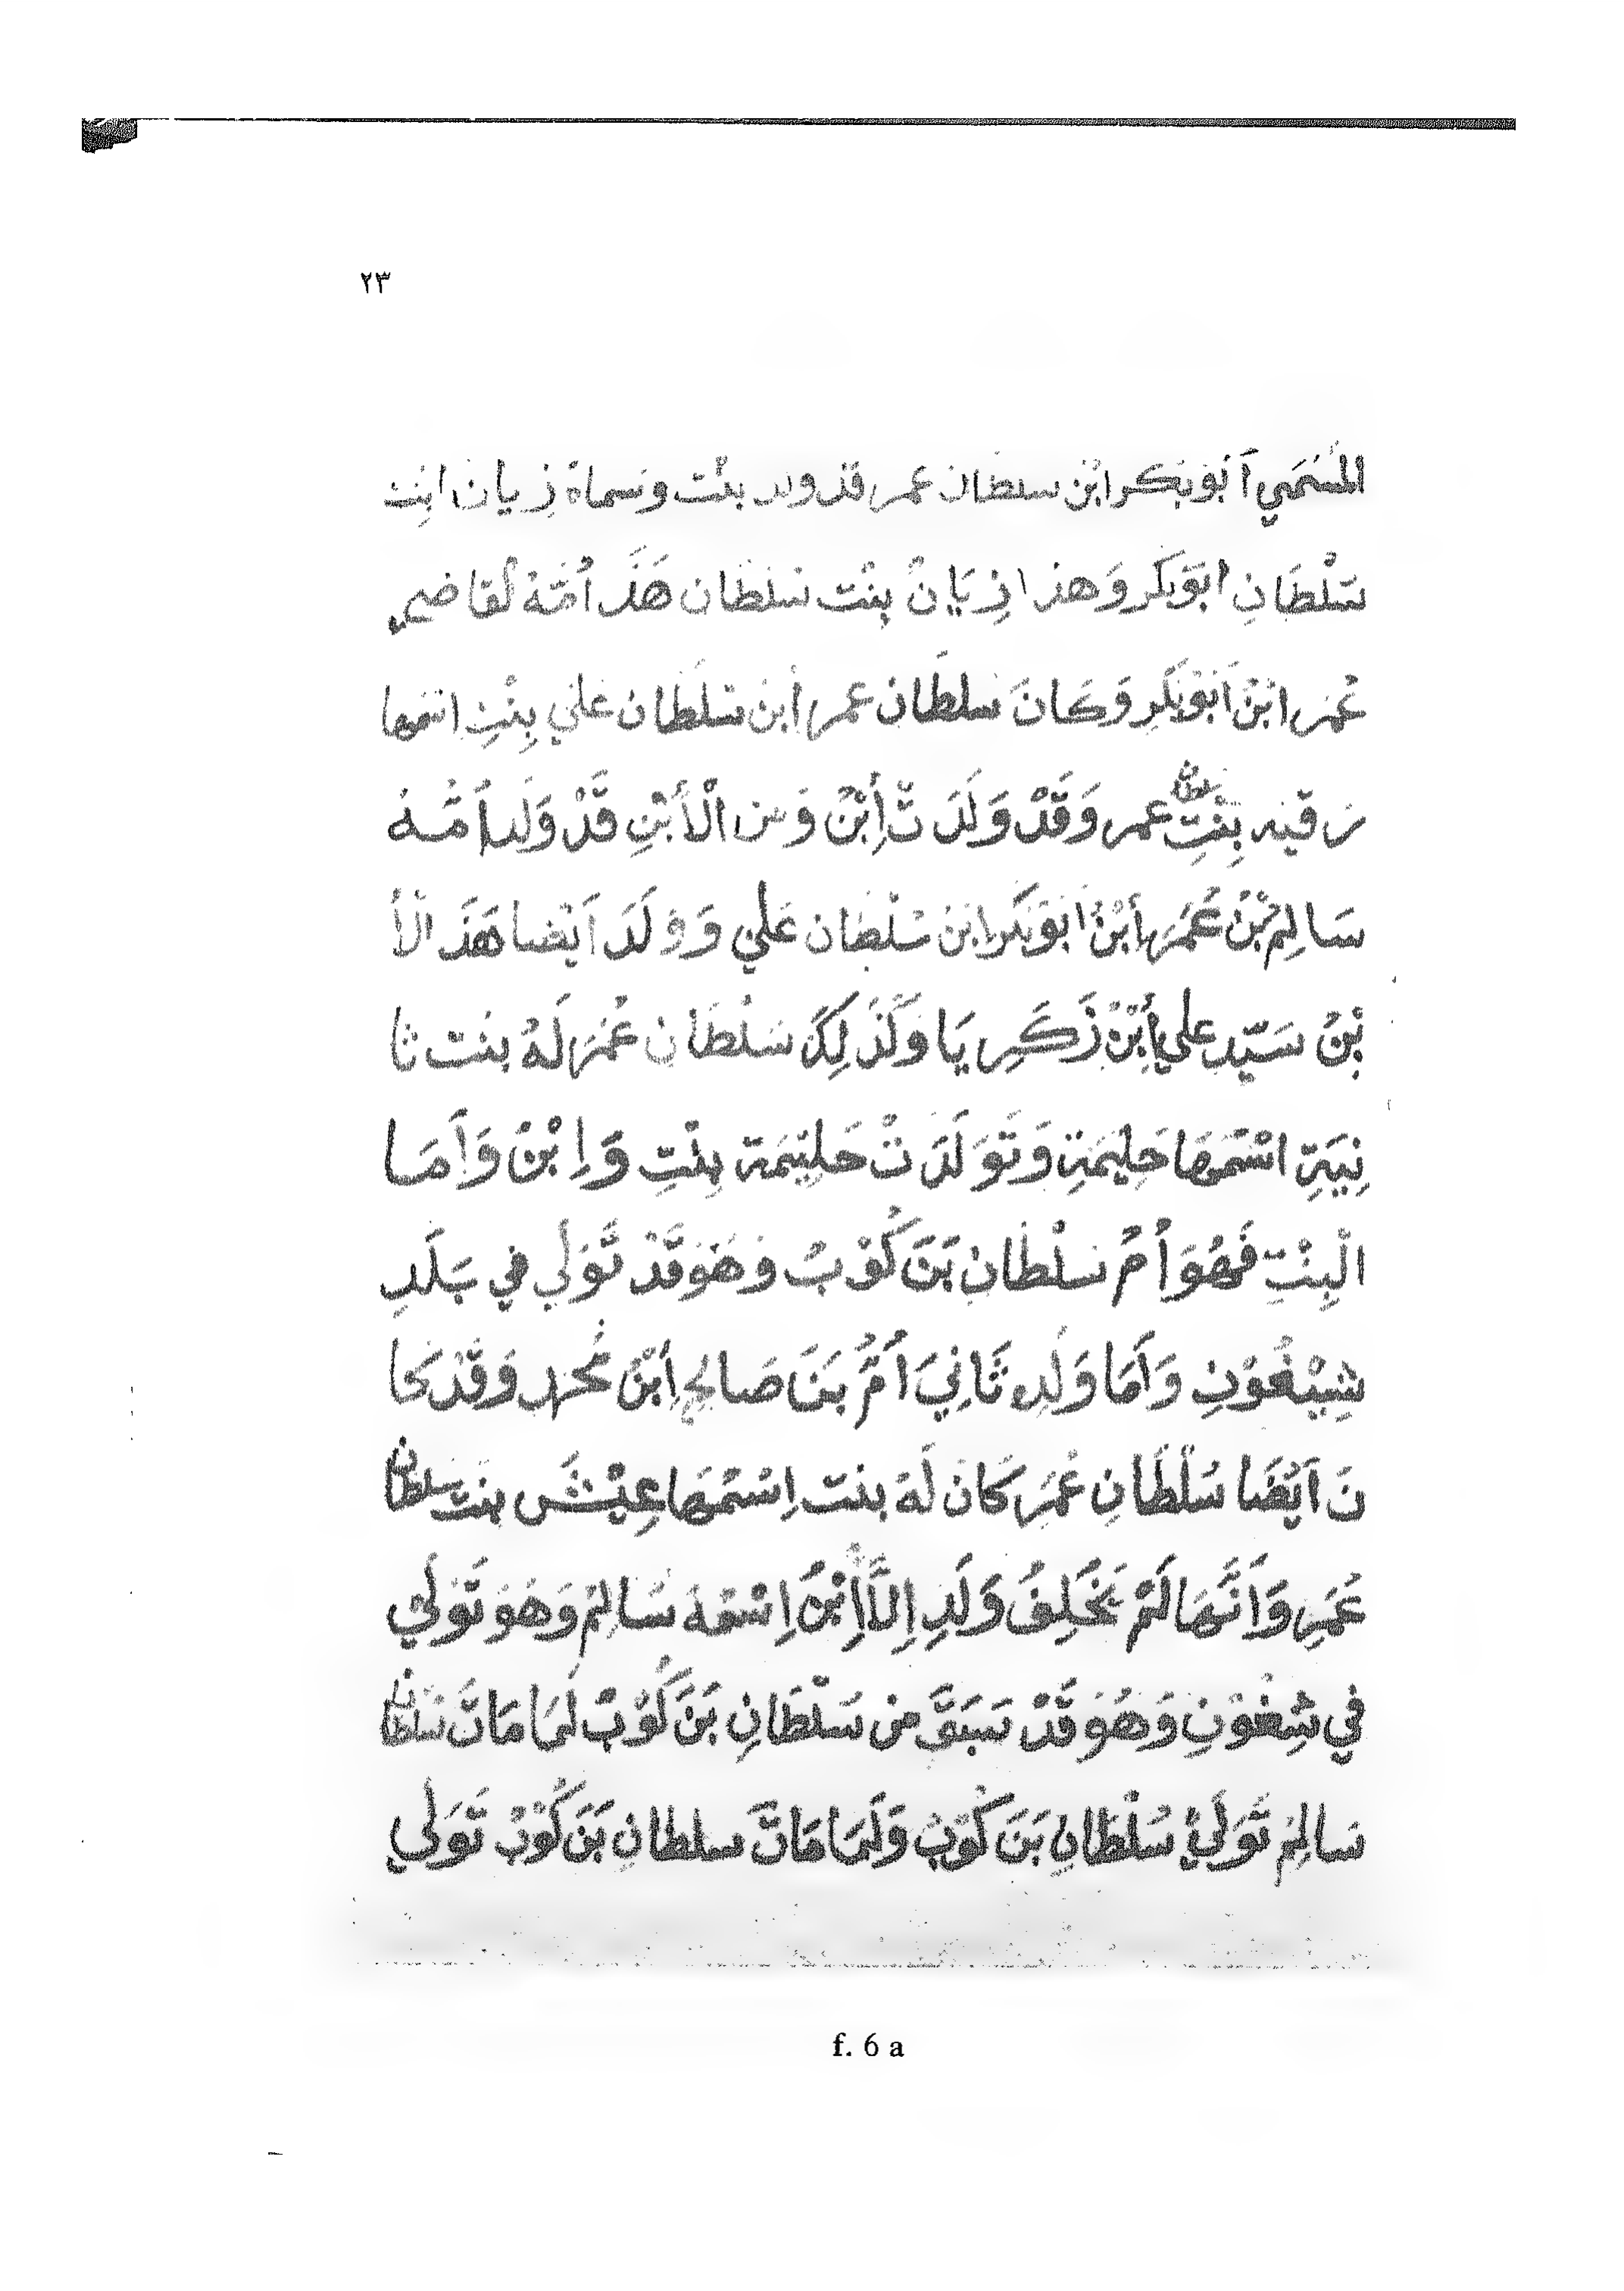 ٢٣
المُسَمَي أَبُوبَكر ابْن سلطان عمر قد ولد بنْت وسماة زِيان ابنِت
سَلْطَانِ ابَوبَكَر وَهذا زِيَانْ بِنْت سَلطَان هَذَ اُمّهُ لقاضي
عُمَر ابْنْ اَبَوْبَكَرِ وَكَانَ سلطَان عمر أبن سَلَطَان عَلي بِنْتِ اسمها
رقيه بِنْتِ سلطان عمر وَقَدْ وَلَدَ تْ أِبْنْ وَمن الْأَبْنِ قَدْ وَلَد اَمُّهُ
سَالِمْ بْنُ عُمَر أبْنْ ابَوْبَكَر ابْن سُلْطَان عَلي وَوُلَدَ اَيْضا هَذَ الْأ
بْنُ سَيّد علي أِبْنْ زَكَرِيَا وَكَذَلِكَ سَلْطَان عُمَر لَهُ بنت ثا
نِيَةِ اسْمهَا حَلِيمَةِ وَتَوَلَدَ تْ حَلِيْمَة بِنْتِ وَاِبْنْ وَاَمَا
الْبِنْتِ فَهُوَ اُمُ سلْطَان بَنَ كُوْبُ وَهُوَ قَدْ تَوَلي في بَلَدِ
شِيْغُوْنِ وَاَمَا وَلَدِ ثَانِيَ اُمُّ بَنَ صَالح اِبْنْ مُحمد وَقَدْ كَا
نَ اَيْضَا سُلْطَانِ عُمَرَ كَانَ لَهُ بنت اِسْمهَا عِيْشَ بنت سلطان
عُمَرِ وَاَنَّهَا لَمْ يَخَلِفُ وَلَدِ اِلَّا اِبْنُ اِسْمهُ سَالِمْ وَهُوَ تَوَلي
في شِغْوَنِ وَهُوَ قَدْ سَبَقَ من سَلْطَانِ بَنَ كُوْبُ لَمَا مَاتَ سَلطان
سَالِمْ تَوَلي سُلْطَانِ بَنَ كُوْبُ وَلَمَا مَاتَ سلطانِ بَنَ كُوْبُ تَوَلي
f. 6 a